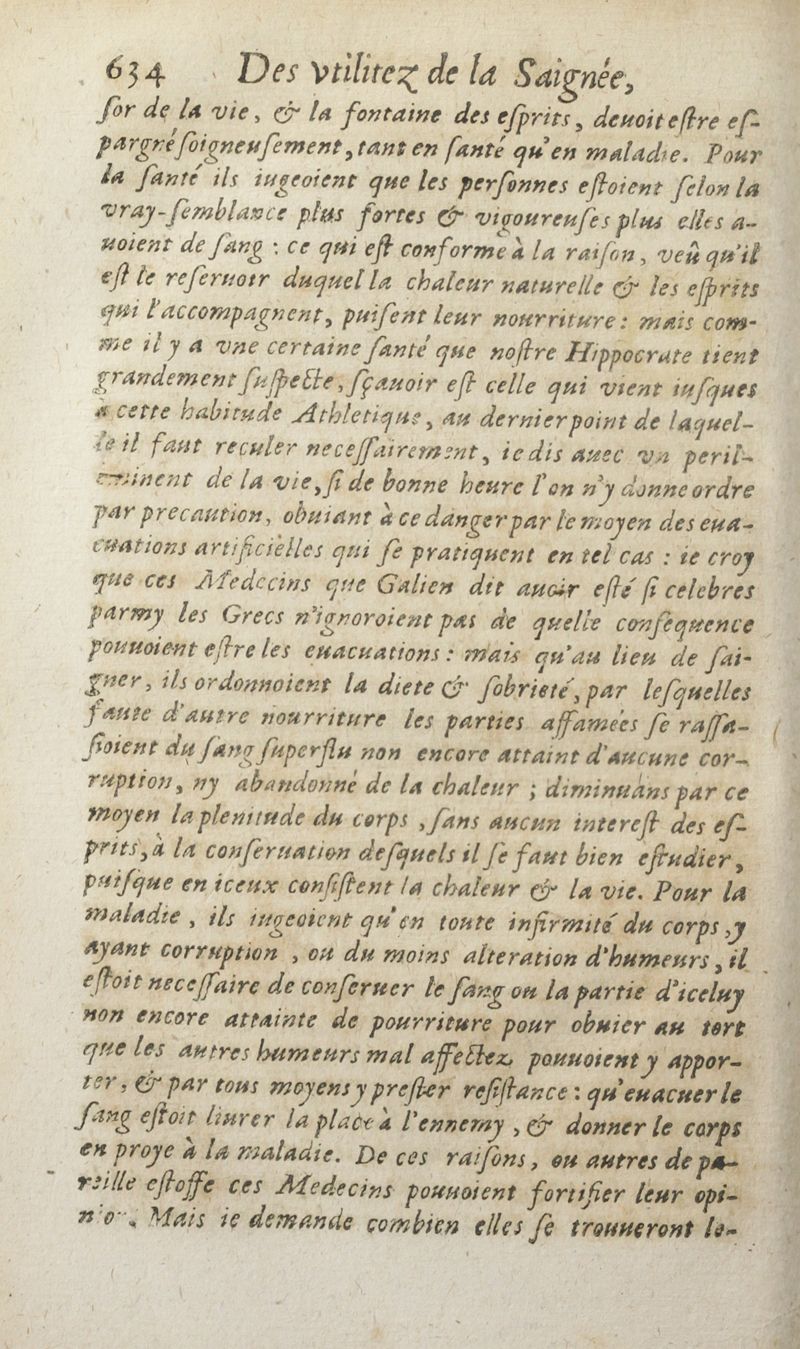 634 Des vtilitez de la Saignée,
ſor de la vie, & la fontaine des eſprits, deuoit eſtre eſ-
pargné ſoigneuſement, tant en ſanté qu'en maladie. Pour
la ſanté ils iugeoient que les perſonnes eſtoient ſelon la
vray-ſemblance plus fortes & vigoureuſes plus elles a-
uoient de ſang : ce qui eſt conforme à la raiſon, veû qu'il
eſt le reſeruoir duquel la chaleur naturelle & les eſprits
qui l'accompagnent, puiſent leur nourriture : mais com-
me il y a vne certaine ſanté que noſtre Hippocrate tient
grandement ſuſpecte, ſçauoir eſt celle qui vient iuſques
à cette habitude Athletique, au dernier point de laquel-
le il faut reculer neceſſairement, ie dis auec vn peril-
eminent de la vie, ſi de bonne heure l'on n'y donne ordre
par precaution, obuiant à ce danger par le moyen des eua-
cuations artificielles qui ſe pratiquent en tel cas : ie croy
que ces Medecins que Galien dit auoir eſté ſi celebres
parmy les Grecs n'ignoroient pas de quelle conſequence
pouuoient eſtre les euacuations : mais qu'au lieu de ſai-
gner, ils ordonnoient la diete & ſobrieté, par leſquelles
faute d'autre nourriture les parties affamées ſe raſſa-
ſioient du ſang ſuperflu non encore attaint d'aucune cor-
ruption, ny abandonné de la chaleur ; diminuans par ce
moyen la plenitude du corps, ſans aucun intereſt des eſ-
prits, à la conſeruation deſquels il ſe faut bien eſtudier,
puiſque en iceux conſiſtent la chaleur & la vie. Pour la
maladie, ils iugeoient qu'en toute infirmité du corps, y
ayant corruption, ou du moins alteration d'humeurs, il
eſtoit neceſſaire de conſeruer le ſang ou la partie d'iceluy
non encore attainte de pourriture pour obuier au tort
que les autres humeurs mal affectez pouuoient y appor-
ter, & par tous moyens y preſter reſiſtance : qu'euacuer le
ſang eſtoit liurer la place à l'ennemy, & donner le corps
en proye à la maladie. De ces raiſons, ou autres de pa-
reille eſtoffe ces Medecins pouuoient fortifier leur opi-
nio. Mais ie demande combien elles ſe trouueront le-